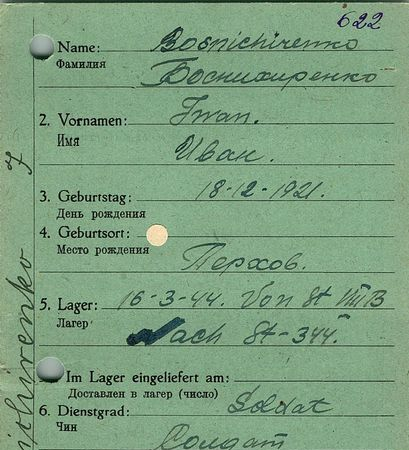 622
Name: Bosnichirenko
Фамилия Боснихиренко
2. Vornamen: Iwan.
Имя Иван.
3. Geburtstag: 18-12-1921.
День рождения
4. Geburtsort:
Место рождения Перхов.
5. Lager: 16-3-44. Von St VIII B
Лагер Nach St-344.
Im Lager eingeliefert am:
Доставлен в лагер (число)
6. Dienstgrad: Soldat
Чин Солдат